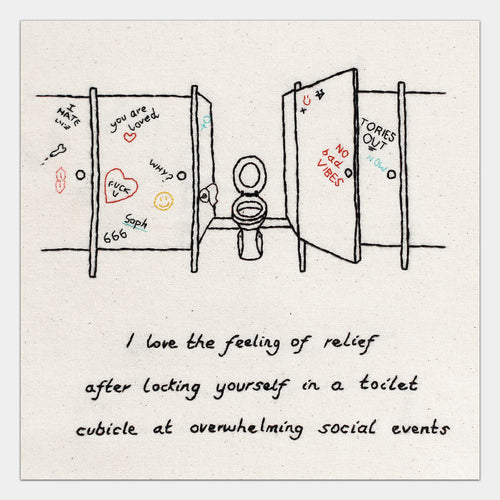 I
HATE
you are
loved
WHY?
FUCK
U
Soph
666
NO
bad
VIBES
TORIES
OUT
NOW!
I love the feeling of relief
after locking yourself in a toilet
cubicle at overwhelming social events